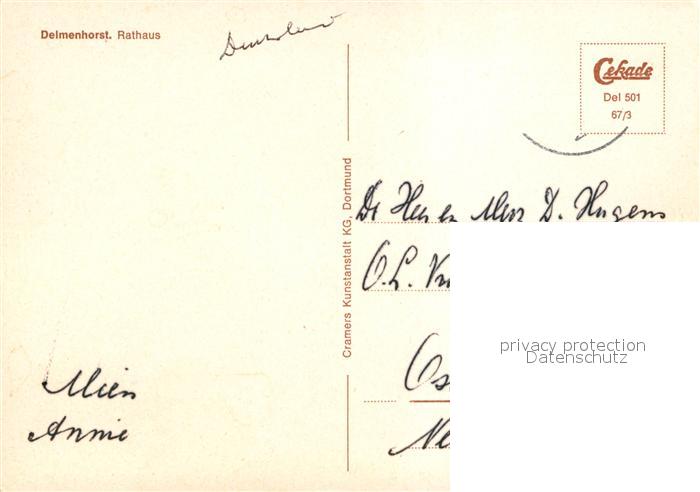 Delmenhorst. Rathaus
Deutschland
Cekade
Del 501
67/3
Cramers Kunstanstalt KG, Dortmund
De Heer en Mevr D. Hugens
O.L.
privacy protection
Datenschutz
Mien
Annie